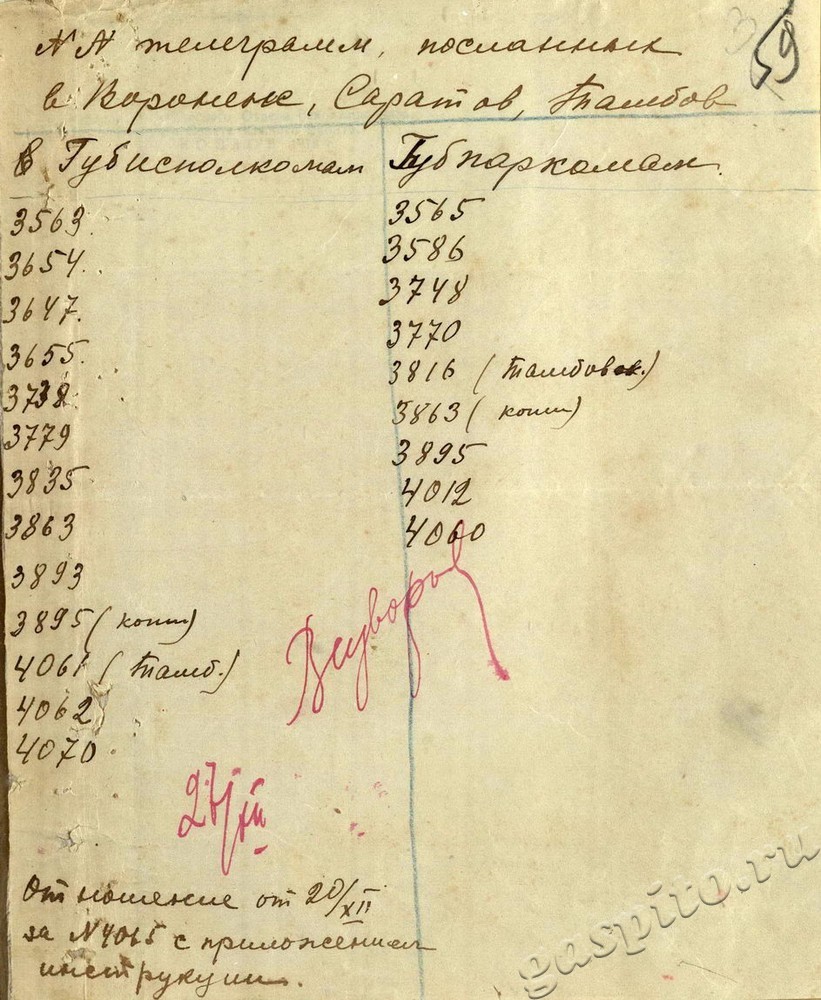 59
№№ телеграмм, посланных
в Воронеж, Саратов, Тамбов
в Губисполкомам
3563.
3654.
3647.
3655.
3738
3779
3835
3863
3893
3895 (копи)
4061 (Тамб.)
4062
4070
Губпаркомам.
3565
3586
3748
3770
3816 (Тамбовск.)
3863 (копи)
3895
4012
4060
27/XII
Отношение от 20/XII
за №4065 с приложением
инструкции.
gaspito.ru